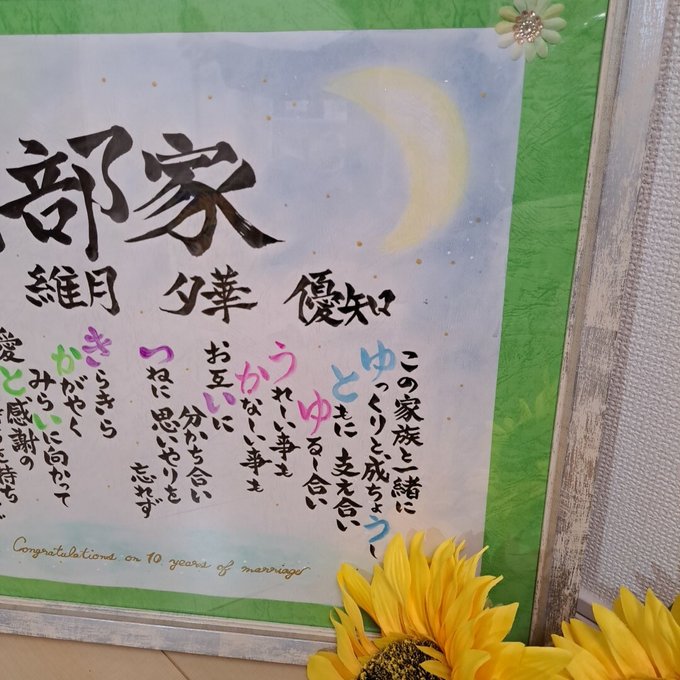 部家
維月 夕華 優知
この家族と一緒に
ゆっくりと成ちょうし
ともに 支え合い
ゆるし合い
うれしい事も
かなしい事も
お互いに
分かち合い
つねに 思いやりを
忘れず
きらきら
かがやく
みらいに向かって
愛と感謝の
Congratulations on 10 years of marriage